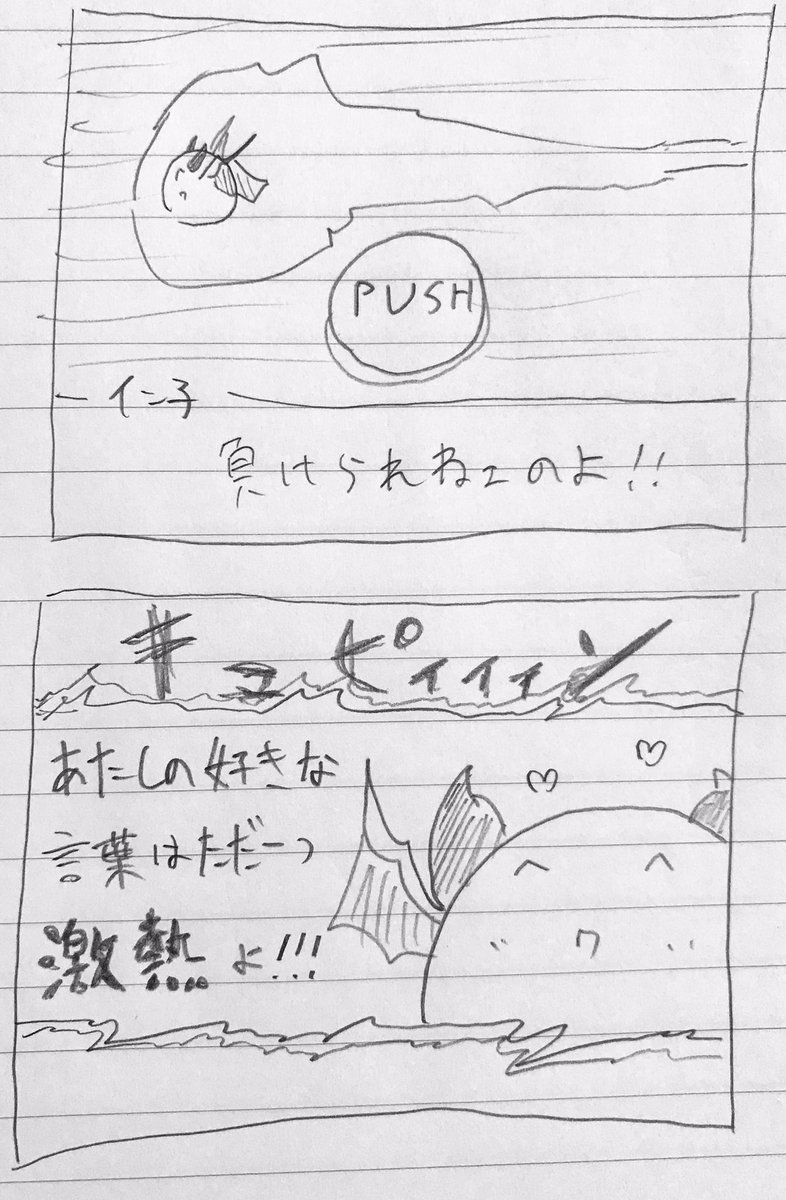 PUSH
イン子
負けられねェのよ!!
キュピィィィン
あたしの好きな
言葉はただ一つ
激熱よ!!!